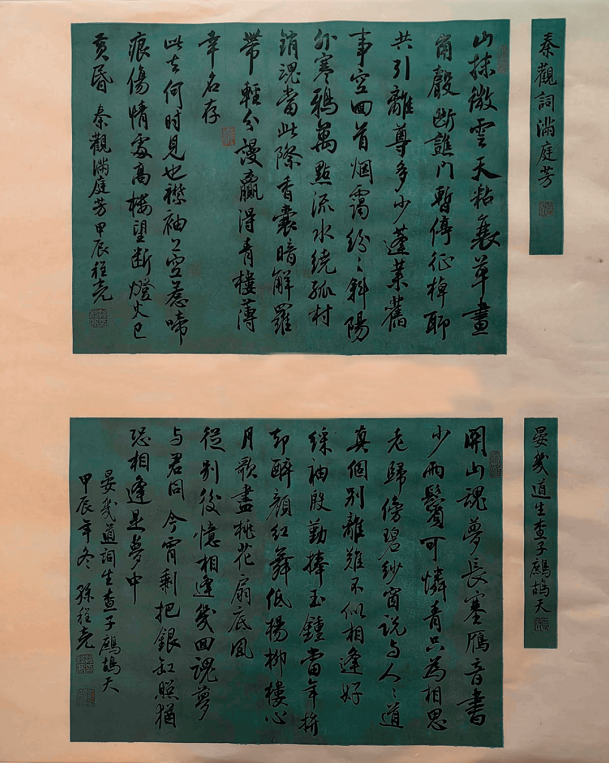 秦觀詞滿庭芳
山抹微雲天粘衰草畫
角聲斷譙門暫停征棹聊
共引離尊多少蓬萊舊
事空回首烟靄紛〻斜陽
外寒鴉萬點流水繞孤村
銷魂當此際香囊暗解羅
帶輕分謾贏得青樓薄
幸名存
此去何時見也襟袖上空惹啼
痕傷情處高樓望斷燈火已
黃昏 秦觀滿庭芳甲辰程尧
晏幾道生查子鷓鴣天
關山魂夢長塞鴈音書
少兩鬢可憐青只為相思
老歸傍碧紗窗說与人〻道
真個別離難不似相逢好
綵袖殷勤捧玉鍾當年拚
却醉顏紅舞低楊柳樓心
月歌盡桃花扇底風
從別後憶相逢幾回魂夢
与君同今宵剩把銀缸照猶
恐相逢是夢中
晏幾道詞生查子鷓鴣天
甲辰年冬 孫程尧